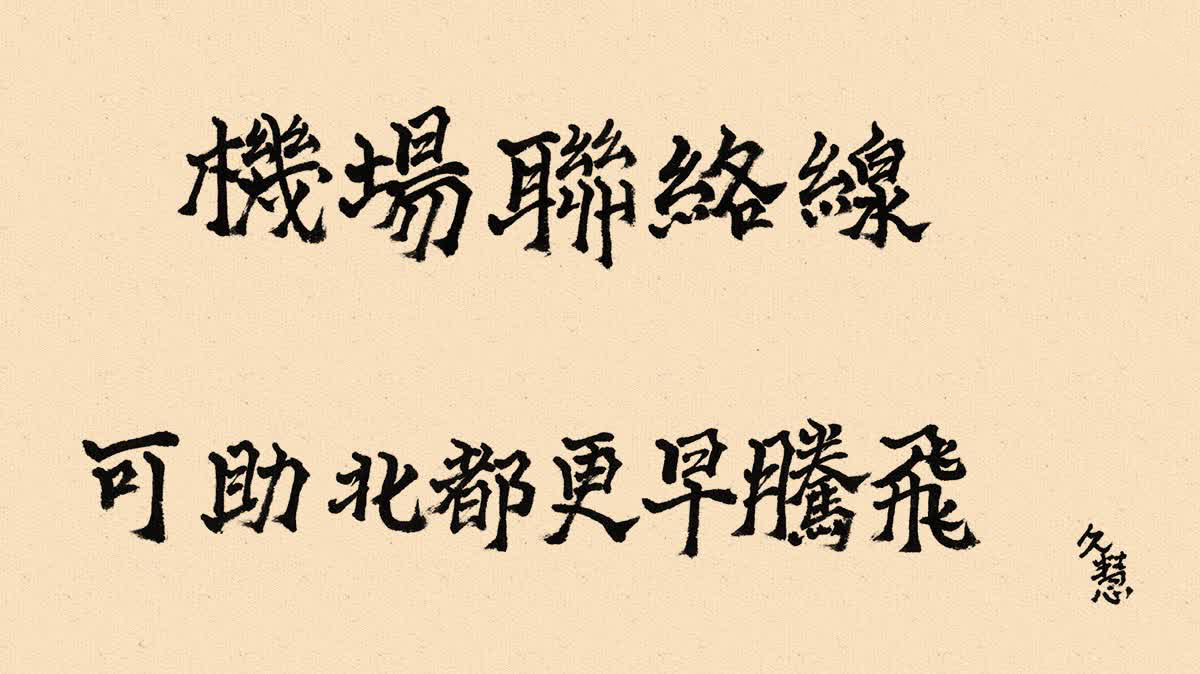 機場聯絡線
可助北都更早騰飛
久慧